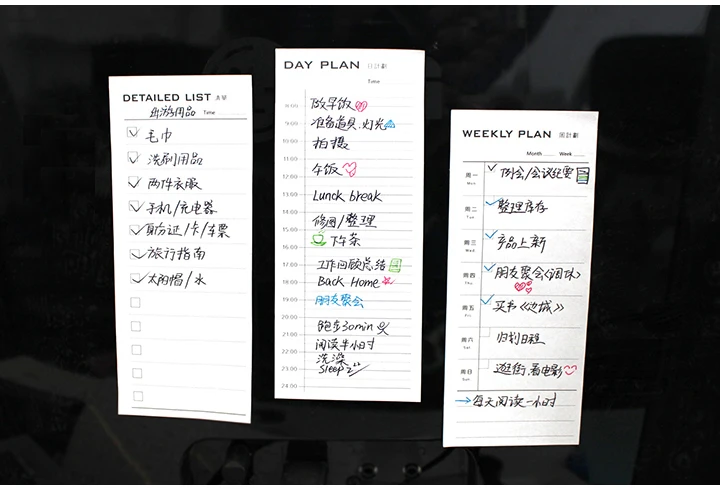 DETAILED LIST 清單
出游用品 Time
毛巾
洗刷用品
两件衣服
手机/充电器
身份证/卡/车票
旅行指南
太阳帽/水
DAY PLAN 日計劃
Time
8:00 做早饭
9:00 准备道具.灯光
10:00 拍摄
11:00
12:00 午饭
13:00 Lunck break
14:00
15:00 修图/整理
16:00 下午茶
17:00 工作回顾总结
18:00 Back Home
19:00 朋友聚会
20:00
21:00 跑步30min
22:00 阅读半小时
23:00 洗澡
Sleep zz
24:00
WEEKLY PLAN 周計劃
Month Week
周一 Mon 例会/会议纪要
周二 Tue 整理库存
周三 Wed 产品上新
周四 Thu 朋友聚会<调休>
周五 Fri 买书《边城》
周六 Sat 归划日程
周日 Sun 逛街.看电影
→每天阅读一小时